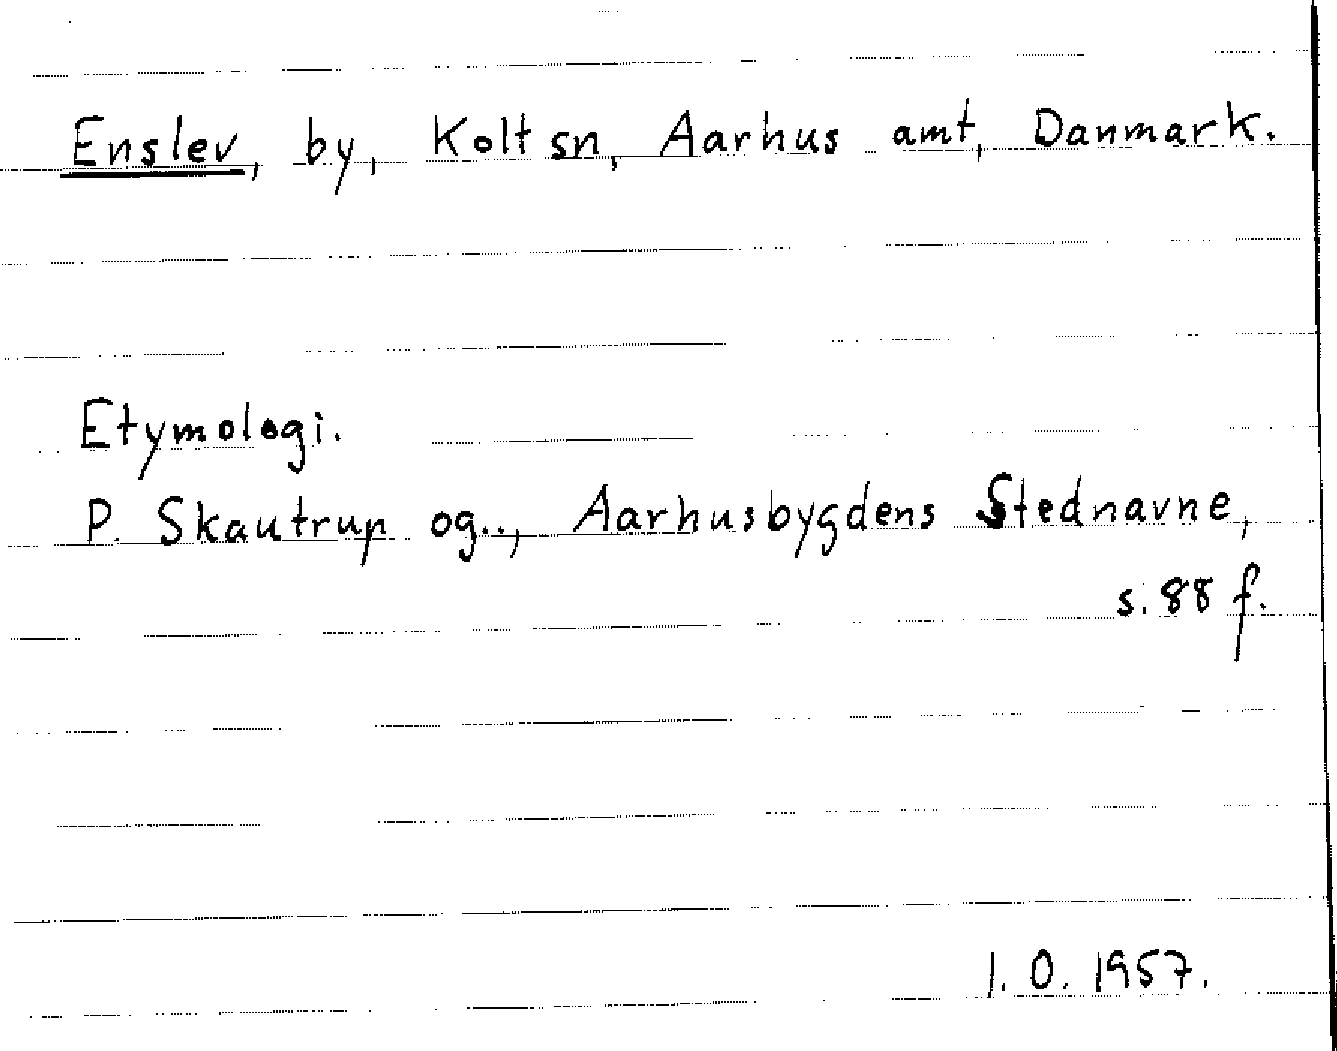 Enslev, by, Kolt sn, Aarhus amt, Danmark.
Etymologi.
P. Skautrup og.., Aarhusbygdens Stednavne,
s. 88 f.
I. O. 1957.